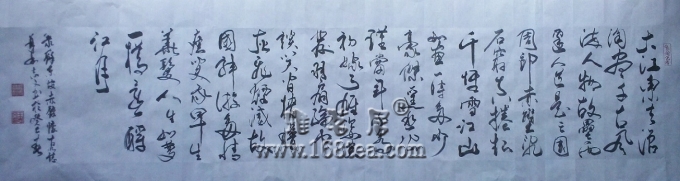 大江東去浪
淘盡千古風
流人物故壘西
邊人道是三國
周郎赤壁亂
千堆雪江山
如畫一時多少
豪傑遙想公
瑾當年小喬
初嫁了雄姿英
發羽扇綸巾
談笑間檣櫓
灰飛煙滅故
國神遊多情
應笑我早生
華髮人生如夢
一樽還酹
江月
www.168tea.com